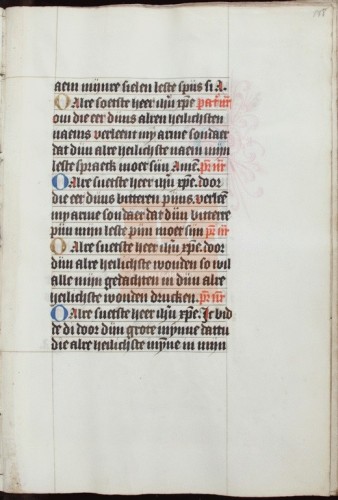 aem mijnre sielen leste spijs si A.
O Alre soetste heer ihu xpe pat nr
om die eer dijns alren heilichsten
naems verleent my arme sondaer
dat dijn alre heilichste naem mijn
leste spraeck moet sijn Amē. pr nr
O Alre suetste heer ihu xpe. door
die eer dijns bitteren pijns. verleē
my arme sondaer dat dijn bittere
pijn mijn leste pijn moet sijn pr nr
O Alre suetste heer ihu xpe. dor
dijn alre heilichste wonden so wil
alle mijn gedachten in dijn alre
heilichste wonden drucken. pr nr
O Alre suetste heer ihu xpe. Ic bid
de di door dijn grote mynne dattu
die alre heilichste mỹne in mijn